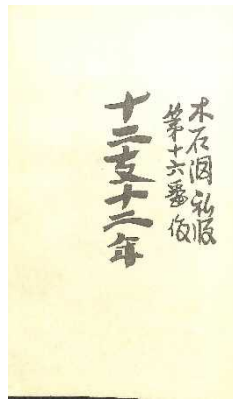 木石洞私版
第十六番
十二支十二年